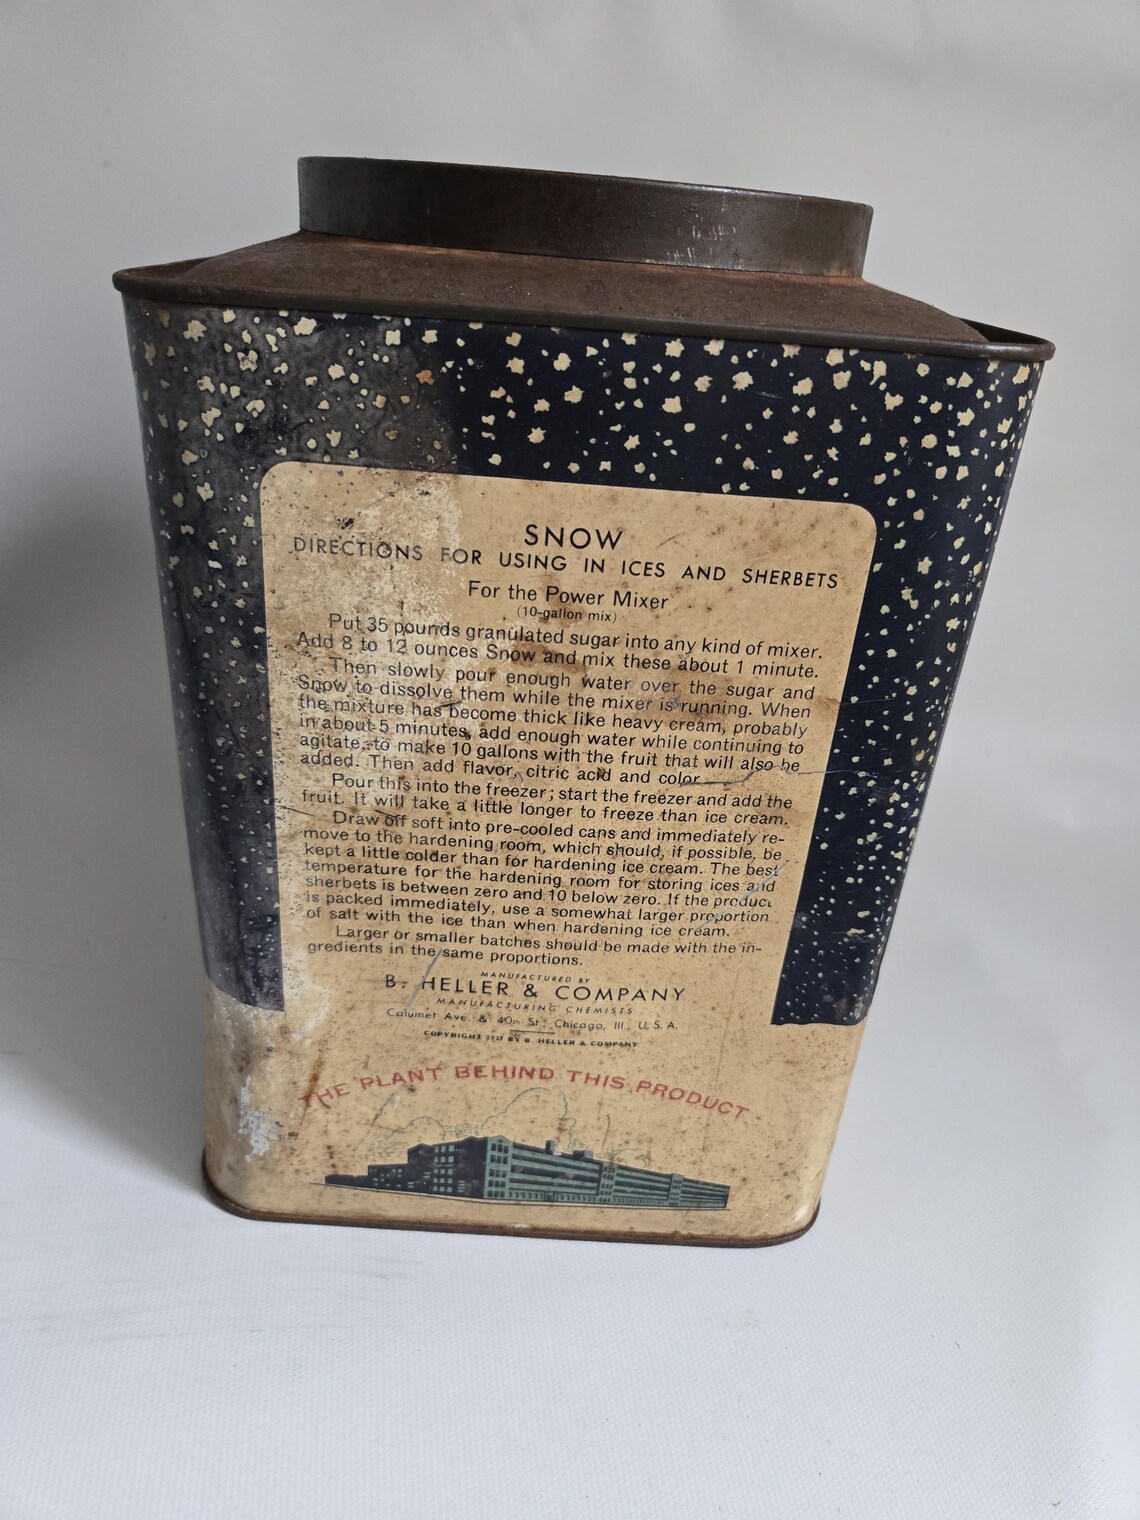 SNOW
DIRECTIONS FOR USING IN ICES AND SHERBETS
For the Power Mixer
(10-gallon mix)
Put 35 pounds granulated sugar into any kind of mixer.
Add 8 to 12 ounces Snow and mix these about 1 minute.
Then slowly pour enough water over the sugar and
Snow to dissolve them while the mixer is running. When
the mixture has become thick like heavy cream, probably
in about 5 minutes, add enough water while continuing to
agitate, to make 10 gallons with the fruit that will also be
added. Then add flavor, citric acid and color.
Pour this into the freezer; start the freezer and add the
fruit. It will take a little longer to freeze than ice cream.
Draw off soft into pre-cooled cans and immediately re-
move to the hardening room, which should, if possible, be
kept a little colder than for hardening ice cream. The best
temperature for the hardening room for storing ices and
sherbets is between zero and 10 below zero. If the product
is packed immediately, use a somewhat larger proportion
of salt with the ice than when hardening ice cream.
Larger or smaller batches should be made with the in-
gredients in the same proportions.
MANUFACTURED BY
B. HELLER & COMPANY
MANUFACTURING CHEMISTS
Calumet Ave. & 40th St., Chicago, Ill., U.S.A.
COPYRIGHT BY B. HELLER & COMPANY
THE PLANT BEHIND THIS PRODUCT